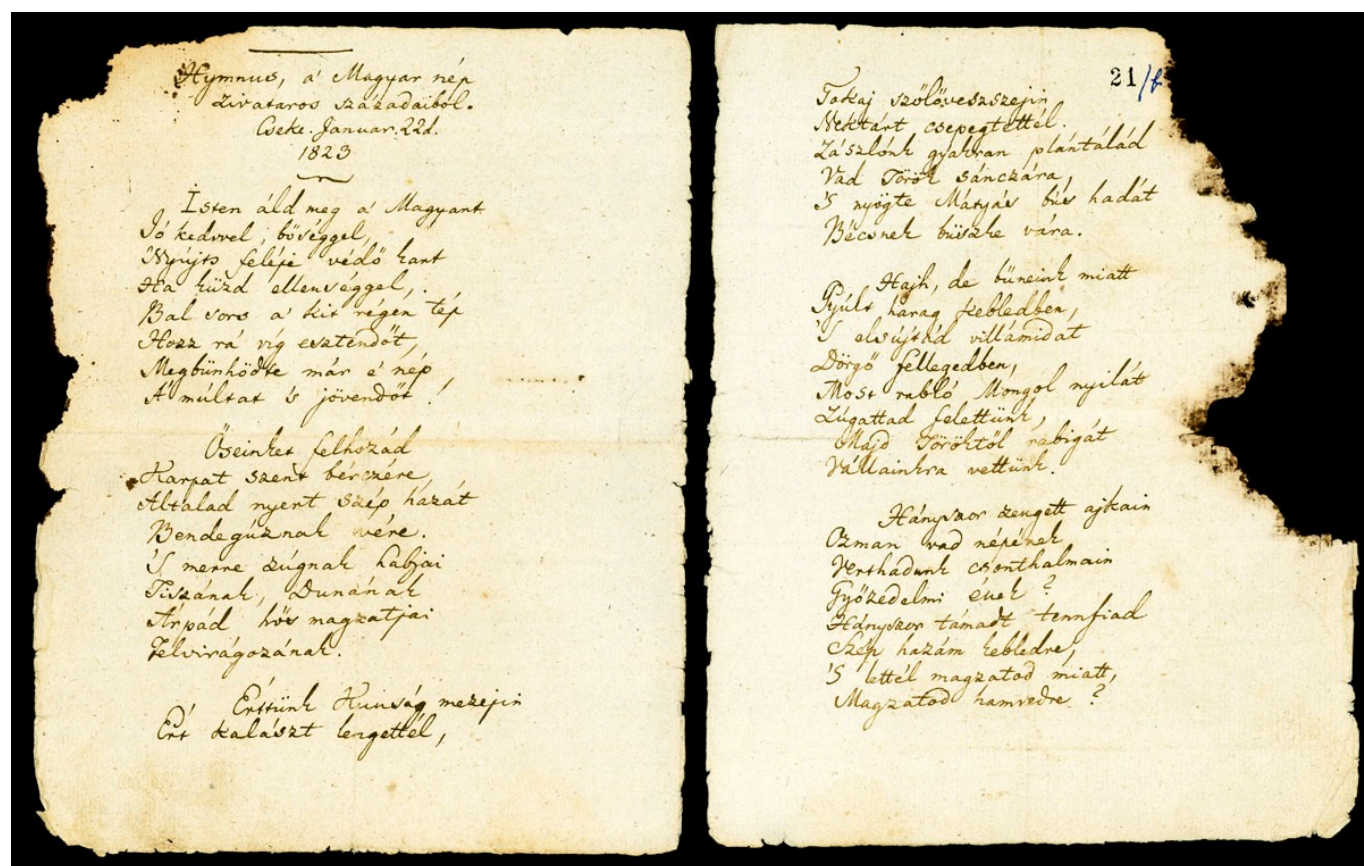 Hymnus, a' Magyar nép
zivataros századaiból.
Cseke. Januar. 22d.
1823
Isten áld meg a' Magyart
Jó kedvvel, bőséggel,
Nyújts feléje védő kart
Ha küzd ellenséggel,
Bal sors a' kit régen tép
Hozz rá víg esztendőt,
Megbűnhődte már e' nép
A' múltat 's jövendőt!
Őseinket felhozád
Karpat szent bérczére
Általad nyert szép hazát
Bendegúznak vére.
'S merre zúgnak habjai
Tiszának, Dunának
Árpád hős magzatjai
Felvirágozának.
Értünk Kunság mezejin
Ért kalászt lengettél,
21/b
Tokaj szőlőveszszejin
Nektárt csepegtettél.
Zászlónk gyakran plántálád
Vad Török sánczára,
'S nyögte Mátyás bús hadát
Bécsnek büszke vára.
Hajh, de bűneink miatt
Gyúlt harag kebledben,
'S elsújtád villámidat
Dörgő fellegedben,
Most rabló Mongol nyilát
Zúgattad felettünk,
Majd Töröktől rabigát
Vállainkra vettünk.
Hányszor zengett ajkain
Ozman vad népének
Vert hadunk csonthalmain
Győzedelmi ének?
Hányszor támadt tennfiad
Szép hazám kebledre,
'S lettél magzatod miatt,
Magzatod hamvedre?